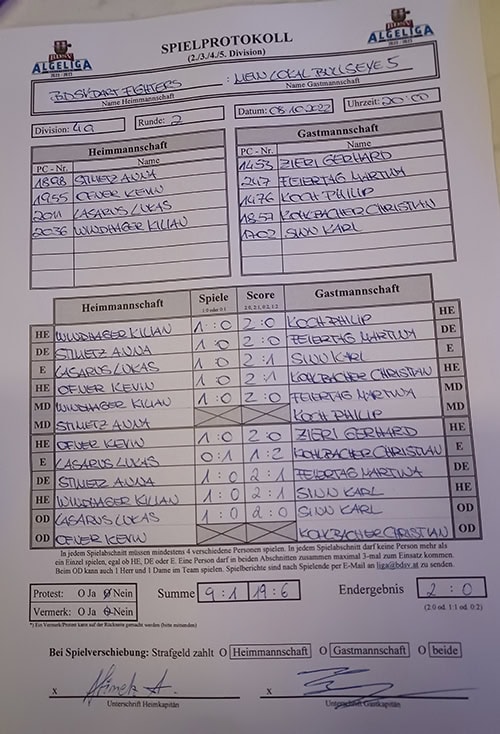 BDSV
ALGELIGA
2022 - 2023
SPIELPROTOKOLL
(2./3./4./5. Division)
BDSV
ALGELIGA
2022 - 2023
FIGHTERS : NEW LOKAL BULLSEYE 5
Name Heimmannschaft Name Gastmannschaft
Division: 4a Runde: 2 Datum: 08.10.2022 Uhrzeit: 20:00
Heimmannschaft Gastmannschaft
PC - Nr. Name PC - Nr. Name
1898 STIMETZ ANNA 1453 ZIERI GERHARD
1955 OFNER KEVIN 2417 FEIERTAG MARTINA
2011 LASARUS LUKAS 1476 KOCH PHILIP
2036 WINDHAGER KILIAN 1857 KOHLBACHER CHRISTIAN
1702 SINN KARL
Heimmannschaft Spiele Score Gastmannschaft
1:0 oder 0:1 2:0, 2:1, 0:2, 1:2
HE WINDHAGER KILIAN 1 : 0 2 : 0 KOCH PHILIP HE
DE STIMETZ ANNA 1 : 0 2 : 0 FEIERTAG MARTINA DE
E LASARUS LUKAS 1 : 0 2 : 1 SINN KARL E
HE OFNER KEVIN 1 : 0 2 : 1 KOHLBACHER CHRISTIAN HE
MD WINDHAGER KILIAN 1 : 0 2 : 0 FEIERTAG MARTINA MD
MD STIMETZ ANNA KOCH PHILIP MD
HE OFNER KEVIN 1 : 0 2 : 0 ZIERI GERHARD HE
E LASARUS LUKAS 0 : 1 1 : 2 KOHLBACHER CHRISTIAN E
DE STIMETZ ANNA 1 : 0 2 : 1 FEIERTAG MARTINA DE
HE WINDHAGER KILIAN 1 : 0 2 : 1 SINN KARL HE
OD LASARUS LUKAS 1 : 0 2 : 0 SINN KARL OD
OD OFNER KEVIN KOHLBACHER CHRISTIAN OD
In jedem Spielabschnitt müssen mindestens 4 verschiedene Personen spielen. In jedem Spielabschnitt darf keine Person mehr als
ein Einzel spielen, egal ob HE, DE oder E. Eine Person darf in beiden Abschnitten zusammen maximal 3-mal zum Einsatz kommen.
Beim OD kann auch 1 Herr und 1 Dame im Team spielen. Spielberichte sind nach Spielende per E-Mail an liga@bdsv.at zu senden.
Protest: O Ja O Nein Summe 9 : 1 19 : 6 Endergebnis 2 : 0
Vermerk: O Ja O Nein (2:0 od. 1:1 od. 0:2)
*) Ein Vermerk/Protest kann auf der Rückseite gemacht werden (bitte ankreuzen)
Bei Spielverschiebung: Strafgeld zahlt O Heimmannschaft O Gastmannschaft O beide
x Stimetz A. x
Unterschrift Heimkapitän Unterschrift Gastkapitän